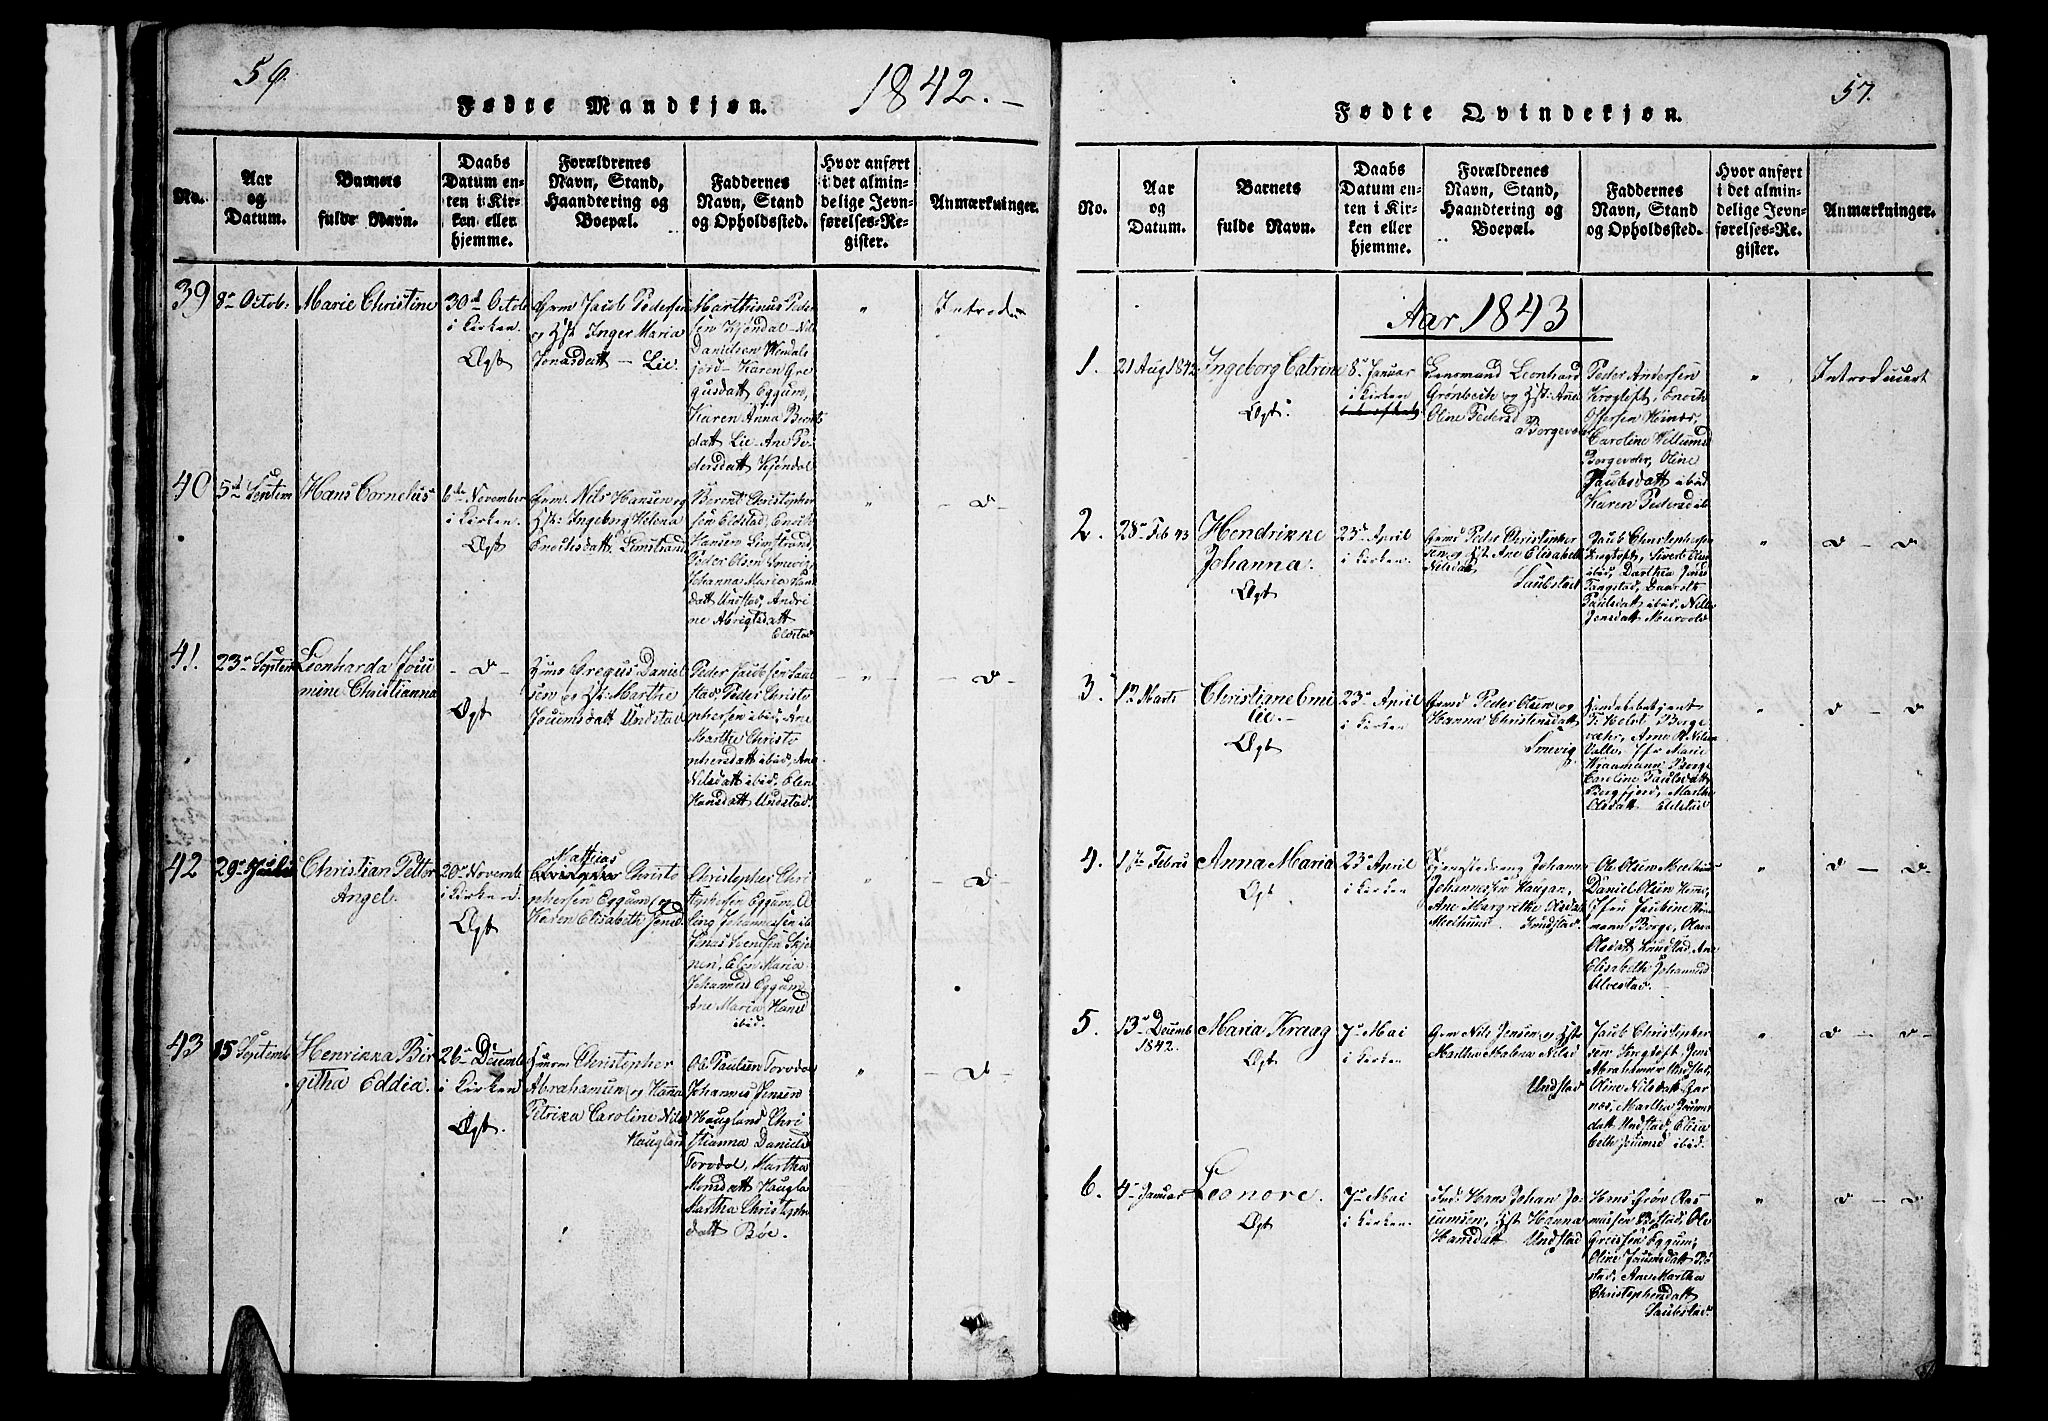 56.
Fødte Mandkjøn.
1842. –
No.
Aar
og
Datum.
Barnets
fulde Navn.
Daabs
Datum en-
ten i Kir-
ken eller
hjemme.
Forældrenes
Navn, Stand,
Haandtering og
Boepæl.
Faddernes
Navn, Stand
og Opholdssted.
Hvor anført
i det almin-
delige Jevn-
førelses-Re-
gister.
Anmærkninger.
39
8de Octob.
Marie Christine
30te Octob
i Kirken.
Ægt
Grm Jacob Pedersen
og Hst Inger Maria
Jonasdatt – Lie.
Marthinus Peder
sen Kjøndal – Nils
Danielsen Wendals
jord – Karen Gre
gusdatt Eggum,
Karen Anna Bernts
datt Lie – Ane Pe
dersdatt Kjøndal
"
Introd
40
5te Septem
Hans Cornelius
6te November
i Kirken.
Ægt
Grm. Nils Hansen og
Hst: Ingeborg Helena
Enochsdatt. Limstrand
Berent Christopher
sen Eldstad, Enoch
Hansen Limstrand,
Peder Olsen Smevig
Johanna Maria Han
datt Undstad, Andri
ne Abrigtsdatt
Eldstad
"
– d –
41.
23de Septem
Leonharda Jocu
mine Christianna
– d –
Ægt
Hmd Gregus Daniel
sen og Hst: Marthe
Jocumsdatt Undstad
Peder Jacobsen Sau
stad, Peder Christo
phersen ibid, Ane
Marthe Christo
phersdatt ibid, Ane
Nilsdatt ibid, Elen
Hansdatt Undstad.
– " –
– d –
42
29de
Christian Petter
Angel.
20de Novemb
i Kirken.
Ægt
Mathias
Christo
phersen Eggum og
Karen Elisabeth Jensd
Christopher Chri
stophersen Eggum, El
ling Johannessen ib
Jonas Svendsen Skje
nen, Elen Maria
Johannesd Eggum
Ane Maria Hansd
ibid.
"
– d –
43
15 Septemb
Henrikka Bir
githa Eddia.
26de Decemb
i Kirken
Ægt.
Christopher
Abrahamsen og Hanna
Petrika Caroline Nilsd
Haugland
Ole Paulsen Torvdal
Johannes Jensen
Haugland, Chri
stianna Daniels
Torvdal, Martha
Monsdatt Haugla
Martha Christoph
datt Bøe.
"
– d –
57.
Fødte Qvindekjøn.
No.
Aar
og
Datum.
Barnets
fulde Navn.
Daabs
Datum en-
ten i Kir-
ken eller
hjemme.
Forældrenes
Navn, Stand,
Haandtering og
Boepæl.
Faddernes
Navn, Stand
og Opholdssted.
Hvor anført
i det almin-
delige Jevn-
førelses-Re-
gister.
Anmærkninger.
Aar 1843
1.
21 Aug 1842
Ingeborg Catrine
Ægt.
8de Januar
i Kirken
Leonhard
Grønbech og Hst: Ane
Oline Pedersd
Borgevær
Peder Andersen
Krogtoft, Enoch
Offersen Weines,
Caroline Willumsd
Borgevær, Oline
Jacobsdatt ibid
Karen Pedersd ib
"
Introducert
2.
28de Feb 43
Hendrikke
Johanna.
Ægt
23de April
i Kirken.
Grmd Peder Christopher
sen og Hst Ane Elisabeth
Nilsdatt
Saubstad
Jacob Christophersen
Krogtoft, Sivert Olsen
ibid, Dorthea Jensd
Tangstad,
Paulsdatt ibid, Nille
Jensdatt Mærvold
"
d – d
3.
12 Marts
Christiane Emi
lie. –
Ægt
23de April
i Kirken
Grmd Peder Olsen og
Hanna Christensdatt
Smevig
Handelsbetjent
P: Holst Borge
vær, Arne A Nilsen
Valle, Jfr Marie
Wraamann Borge
Caroline Paulsdatt
Borgfjord, Marthe
Olsdatt. Eldstad
"
d – d
4.
17de Febru
Anna Maria
Ægt
23de April
i Kirken
Gjæstedreng Johann
Johannessen Haugan,
Ane Margrethe Olsdatt
Meelhuus. Knudstad.
Ole Olsen Meelhuus
Daniel Olsen Homs,
Jfru Jacobine Wra
mann Borge, Olava
Olsdatt Knudstad, Ane
Elisabeth Johannesd
Alvestad. –
"
d – d.
5.
13de Decemb
1842.
Maria Kraag
Ægt
7de Mai
i Kirken
Grm Nils Jensen og Hst
Martha Malena Nilsd
Undstad
Jacob Christopher
sen Krogtoft, Jens
Abrahamsen Undstad,
Oline Nilsdatt Jar
nes, Martha Jocum
datt Undstad, Elisa
beth Jocumsd ibid.
"
d – d –
6.
4de Januar
Leonore.
Ægt
7de Mai
i Kirken.
Ind: Hans Johan Jo
cumsen, Hst Hanna
Hansdatt Undstad
Hans Grøn Ras
mussen Bøstad, Ole
Greissen Eggum,
Oline Jocumsdatt Bø
stad, Ane Martha
Christophersdatt
Saubstad
"
d – d